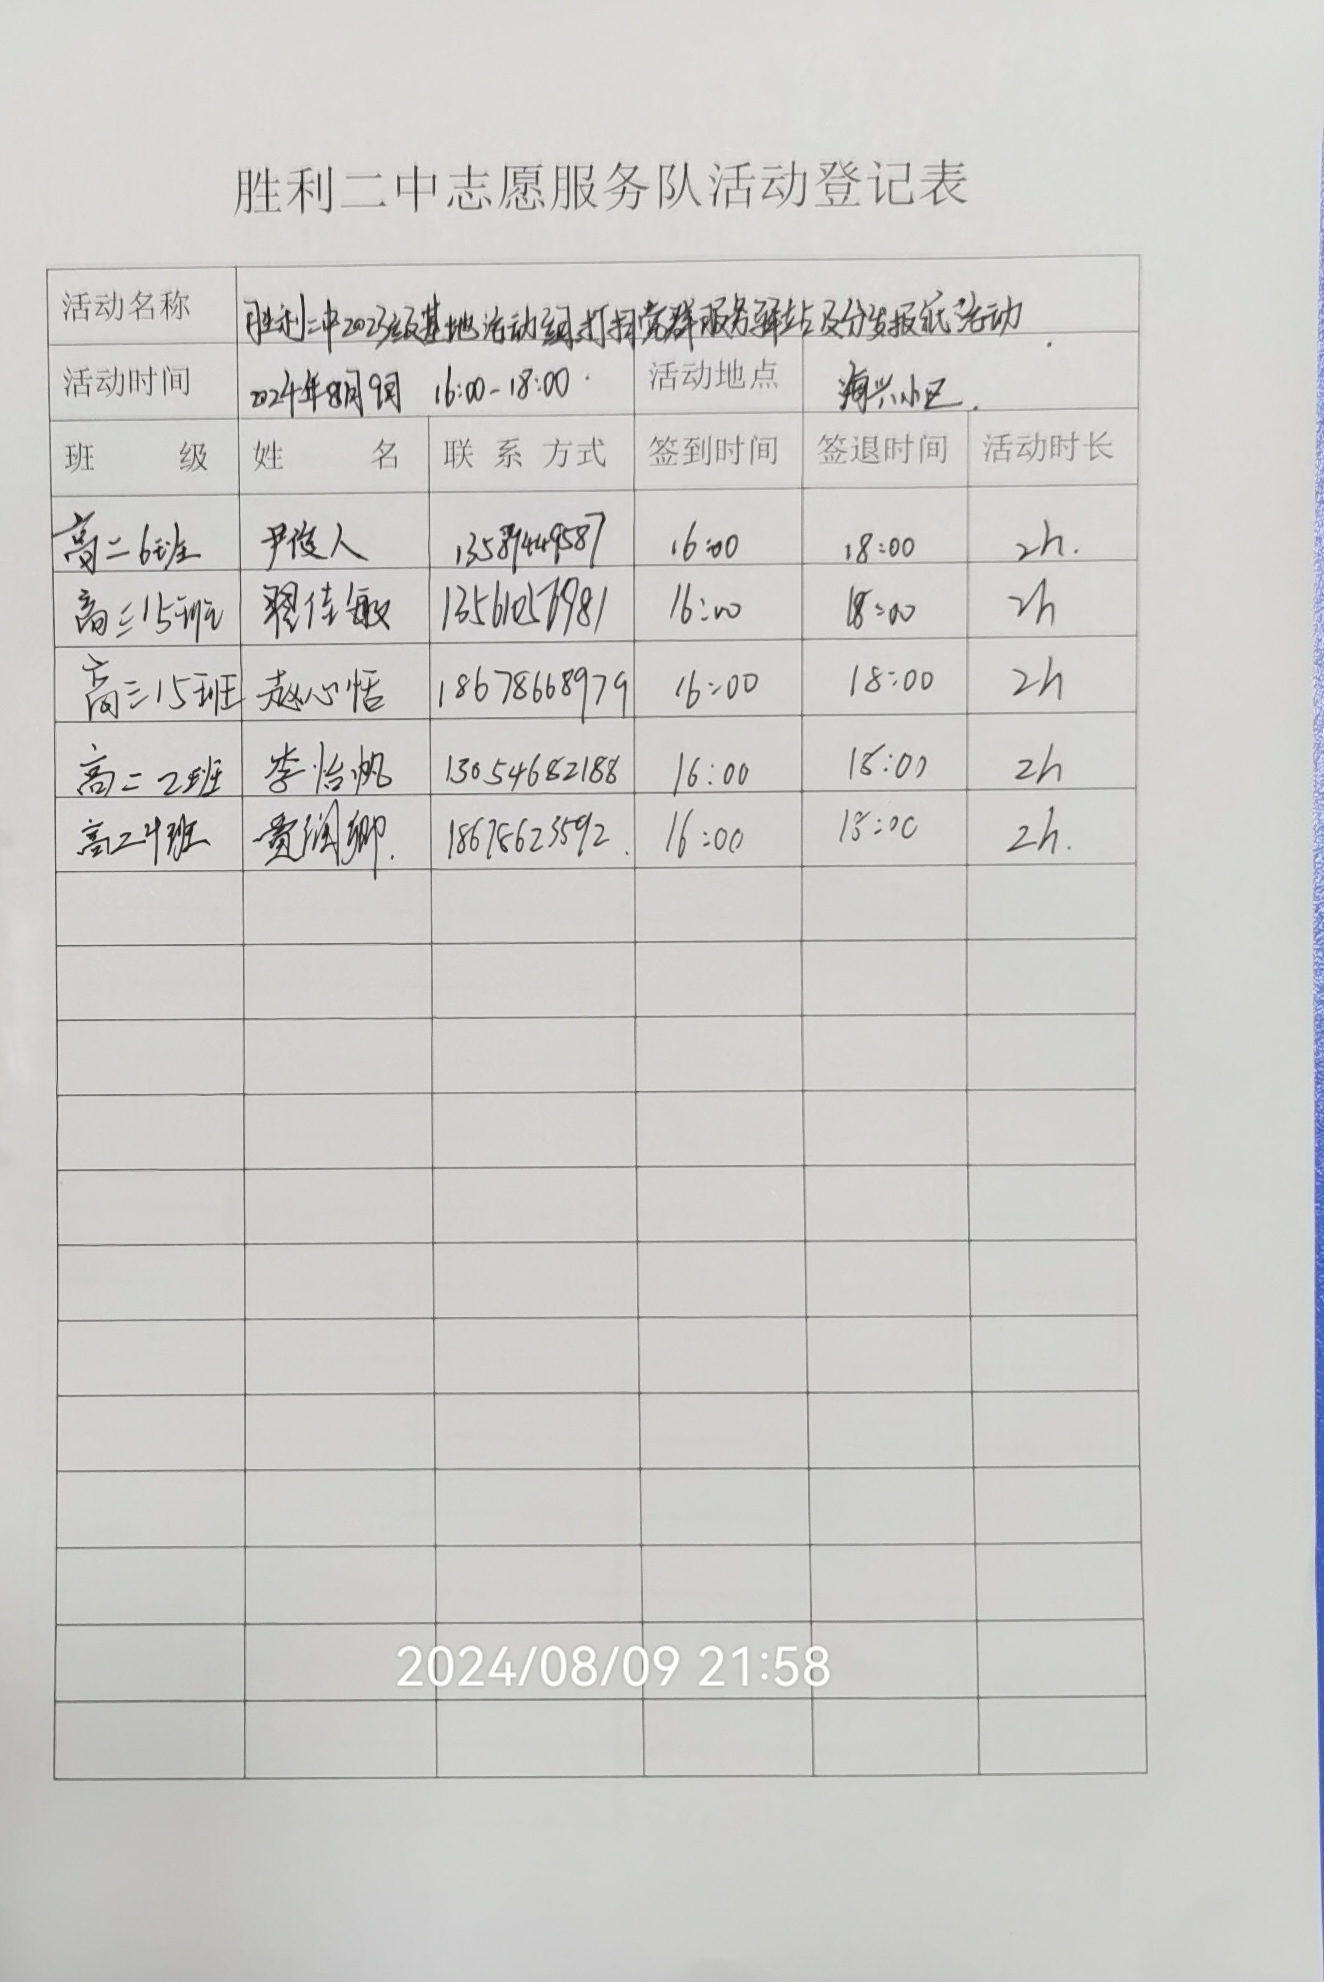 胜利二中志愿服务队活动登记表
活动名称 胜利二中2023级基地活动组打扫党群服务驿站及分发报纸活动.
活动时间 2024年8月9日 16:00-18:00. 活动地点 海兴小区.
班 级 姓 名 联 系 方式 签到时间 签退时间 活动时长
高二6班 尹俊人 16:00 18:00 2h.
高三15班 翟佳敏 16:00 18:00 2h
高三15班 赵心恬 18678668979 16:00 18:00 2h
高二2班 李怡帆 13054682188 16:00 18:00 2h
高二4班 费润卿. 18678623592. 16:00 18:00 2h.
2024/08/09 21:58